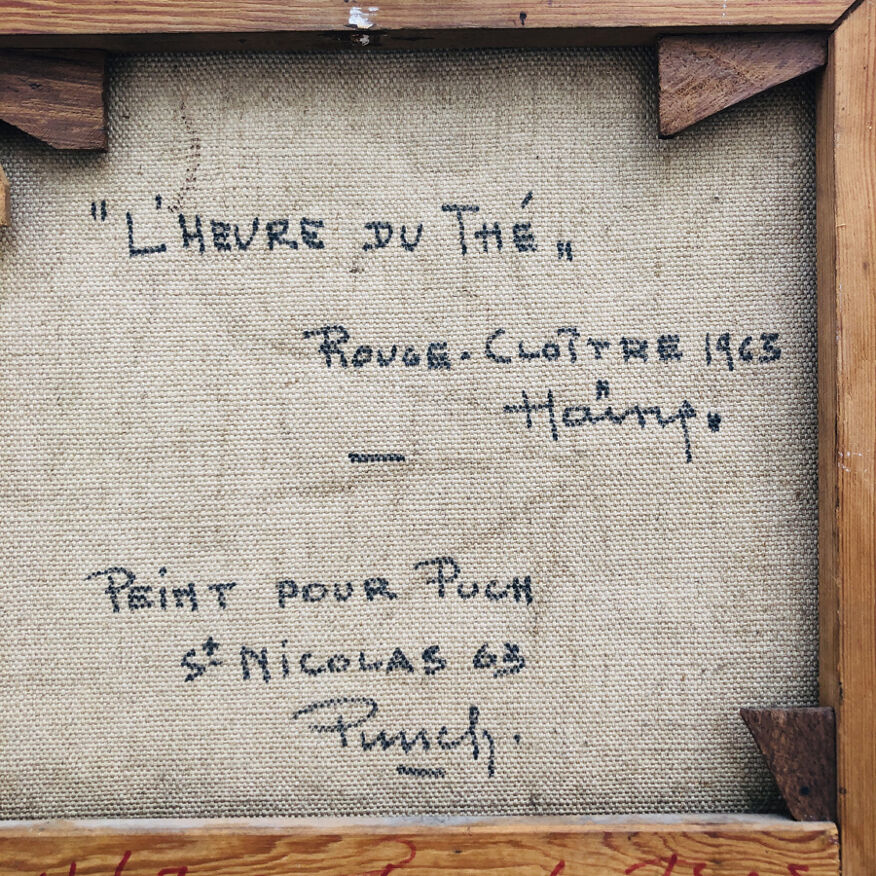 "L'HEURE DU THÉ„
ROUGE-CLOÎTRE 1963
PEINT POUR PUCH
St NICOLAS 63
Punch.